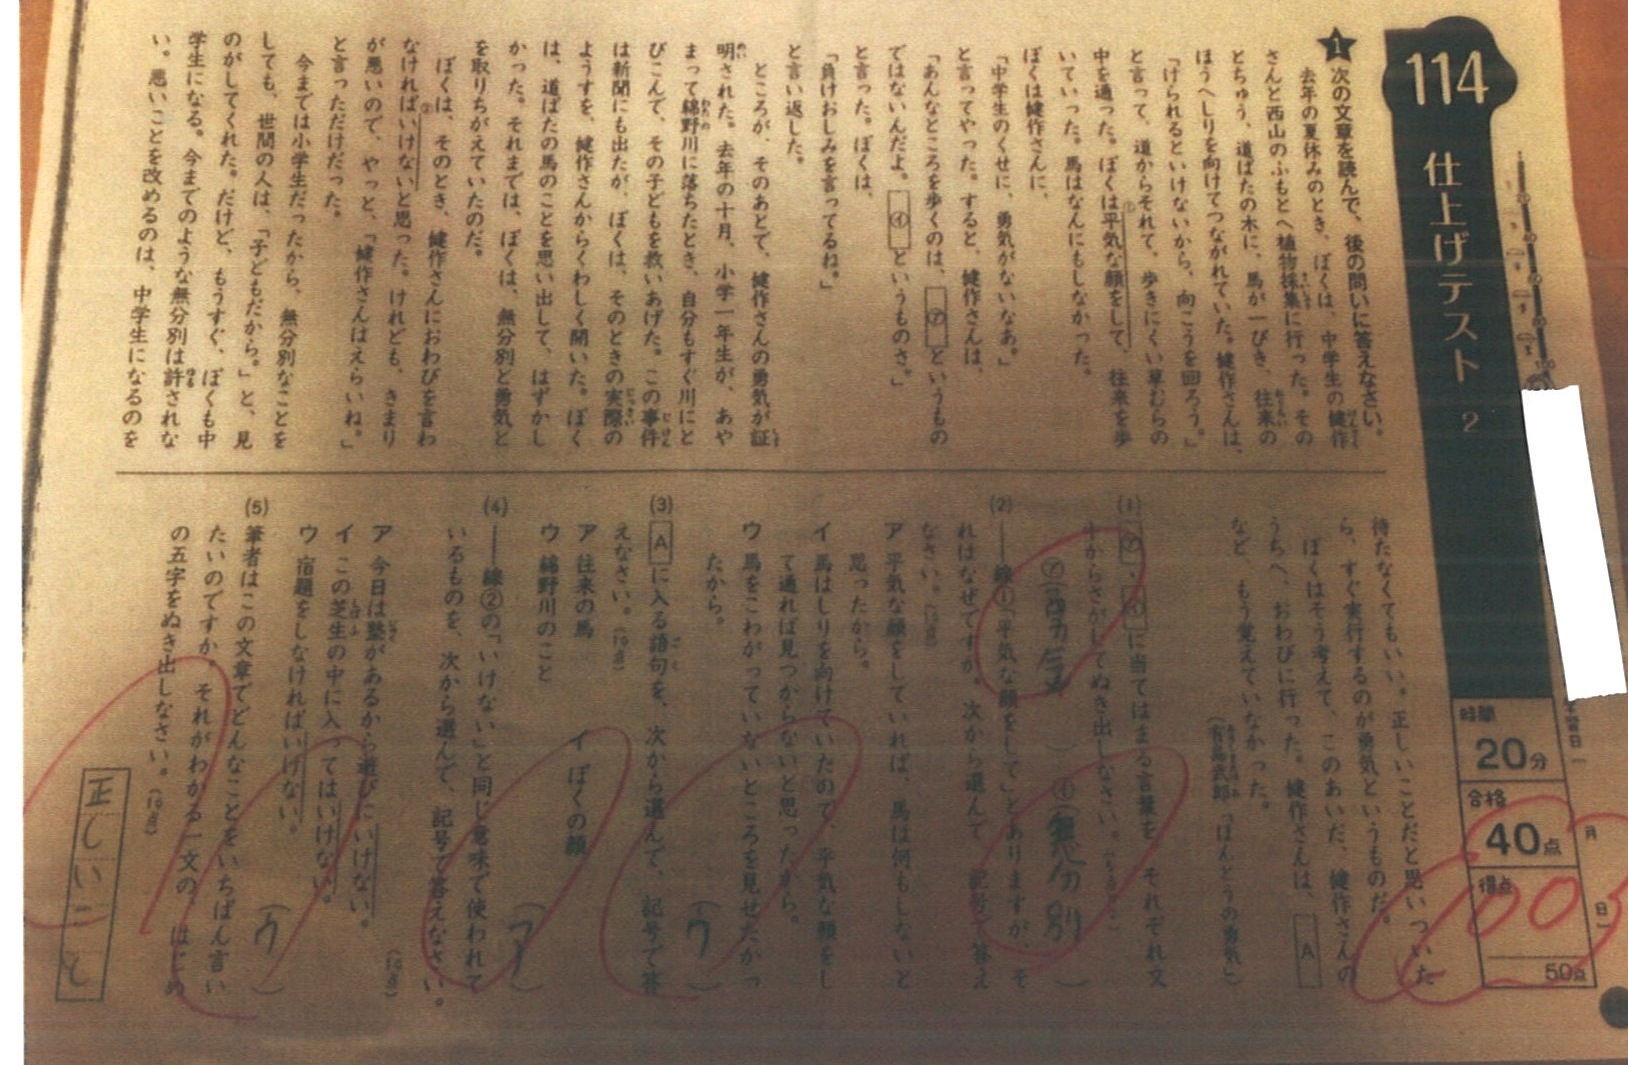 114 仕上げテスト 2
時間
20分
合格
40点
得点
50点
1 次の文章を読んで、後の問いに答えなさい。
去年の夏休みのとき、ぼくは、中学生の健作
さんと西山のふもとへ植物採集に行った。その
とちゅう、道ばたの木に、馬が一ぴき、往来の
ほうへしりを向けてつながれていた。健作さんは、
「けられるといけないから、向こうを回ろう。」
と言って、道からそれて、歩きにくい草むらの
中を通った。ぼくは①平気な顔をして、往来を歩
いていった。馬はなんにもしなかった。
ぼくは健作さんに、
「中学生のくせに、勇気がないなあ。」
と言ってやった。すると、健作さんは、
「あんなところを歩くのは、㋐というもの
ではないんだよ。㋑というものさ。」
と言った。ぼくは、
「負けおしみを言ってるね。」
と言い返した。
ところが、そのあとで、健作さんの勇気が証
明された。去年の十月、小学一年生が、あや
まって綿野川に落ちたとき、自分もすぐ川にと
びこんで、その子どもを救いあげた。この事件
は新聞にも出たが、ぼくは、そのときの実際の
ようすを、健作さんからくわしく聞いた。ぼく
は、道ばたの馬のことを思い出して、はずかし
かった。それまでは、ぼくは、無分別と勇気と
を取りちがえていたのだ。
ぼくは、そのとき、健作さんにおわびを言わ
なければ②いけないと思った。けれども、きまり
が悪いので、やっと、「健作さんはえらいね。」
と言っただけだった。
今までは小学生だったから、無分別なことを
しても、世間の人は、「子どもだから。」と、見
のがしてくれた。だけど、もうすぐ、ぼくも中
学生になる。今までのような無分別は許されな
い。悪いことを改めるのは、中学生になるのを
待たなくてもいい。正しいことだと思いついた
ら、すぐ実行するのが勇気というものだ。
ぼくはそう考えて、このあいだ、健作さんの
うちへ、おわびに行った。健作さんは、A
など、もう覚えていなかった。
(有島武郎「ほんとうの勇気」)
(1) ㋐、㋑に当てはまる言葉を、それぞれ文
中からさがしてぬき出しなさい。
㋐(勇気) ㋑(無分別)
(2) ――線①「平気な顔をして」とありますが、そ
れはなぜですか。次から選んで、記号で答え
なさい。(10点)
ア 平気な顔をしていれば、馬は何もしないと
思ったから。
イ 馬はしりを向けていたので、平気な顔をし
て通れば見つからないと思ったから。
ウ 馬をこわがっていないところを見せたかっ
たから。
(ウ)
(3) Aに入る語句を、次から選んで、記号で答
えなさい。(10点)
ア 往来の馬 イ ぼくの顔
ウ 綿野川のこと
(ア)
(4) ――線②の「いけない」と同じ意味で使われて
いるものを、次から選んで、記号で答えなさい。
(10点)
ア 今日は塾があるから遊びにいけない。
イ この芝生の中に入ってはいけない。
ウ 宿題をしなければいけない。
(ウ)
(5) 筆者はこの文章でどんなことをいちばん言い
たいのですか。それがわかる一文の、はじめ
の五字をぬき出しなさい。(10点)
正しいこと